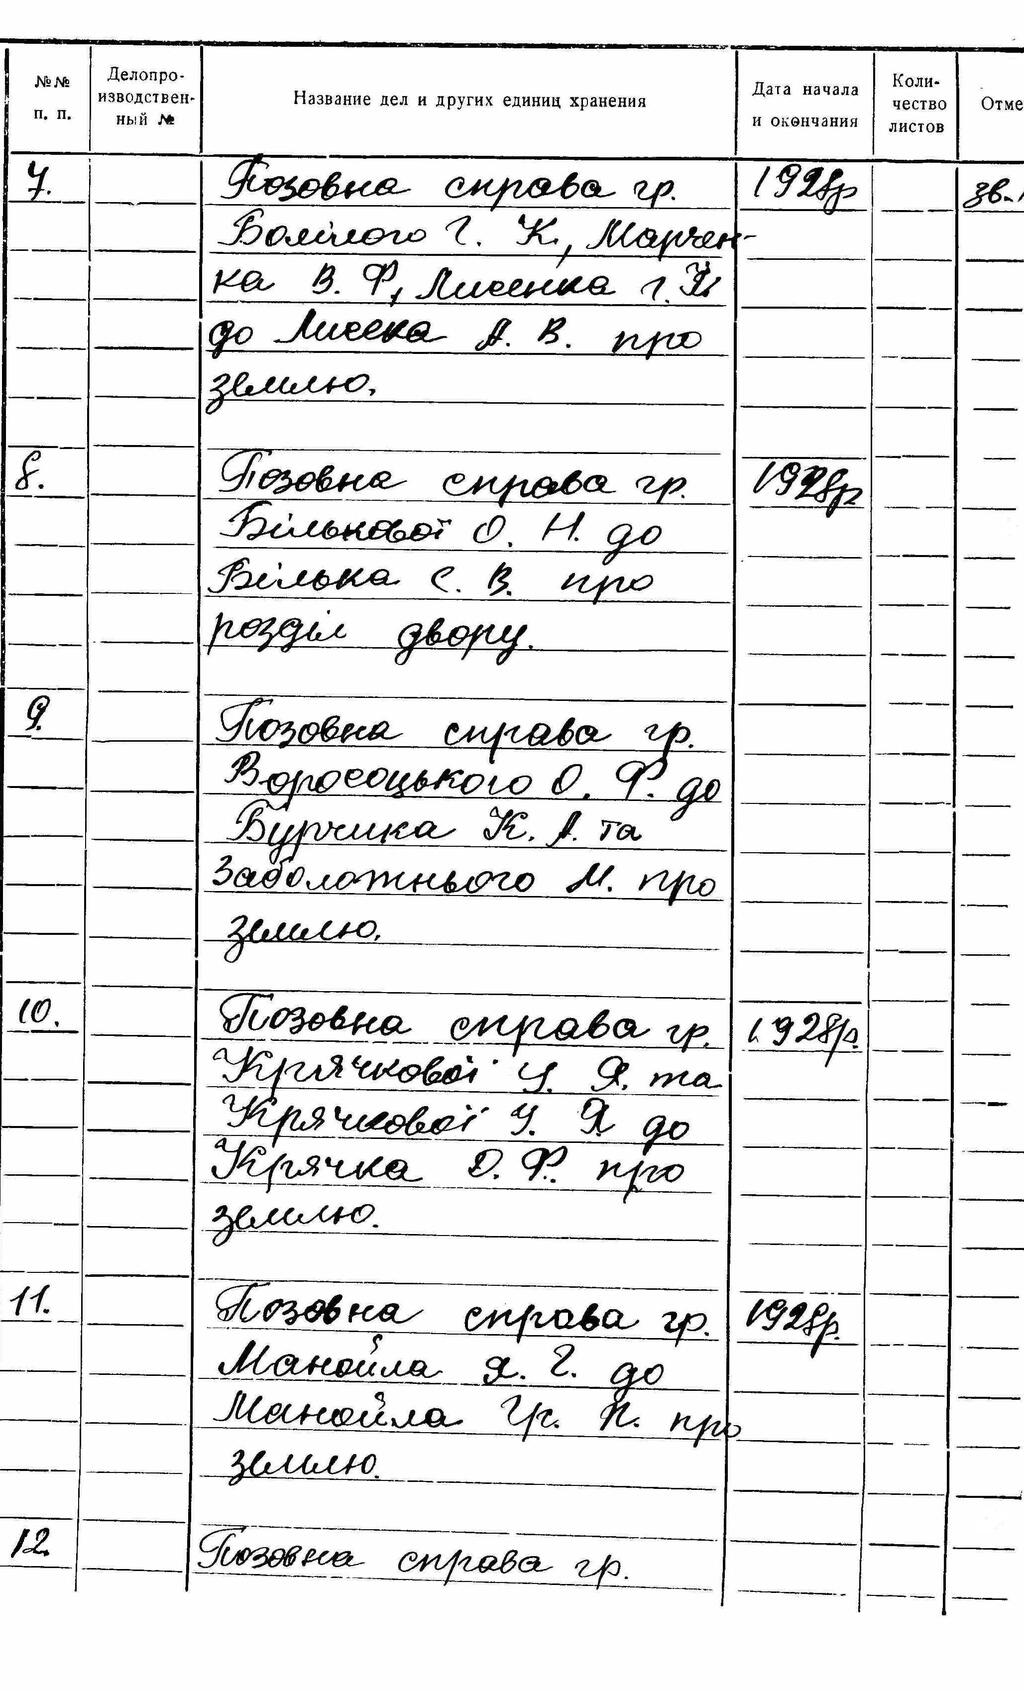 №№ п. п.
Делопро-
изводствен-
ный №
Название дел и других единиц хранения
Дата начала
и окончания
Коли-
чество
листов
Отме
7.
Позовна справа гр.
1928р
зв.
Болілого Г. К., Марчен-
ка В. Ф., Лисенка Г.
до Лисека А. В. про
землю.
8.
Позовна справа гр.
1928р
Бількової О. Н. до
Білька Є. В. про
розділ двору.
9.
Позовна справа гр.
Воросоцького О. Ф. до
Бурчика К. А. та
Заболотнього М. про
землю.
10.
Позовна справа гр.
1928р.
Крячкової У. Я. та
Крячкової У. Я до
Крячка О. Ф. про
землю.
11.
Позовна справа гр.
1928р.
Манойла Я. Г. до
Манойла Гр. К. про
землю.
12.
Позовна справа гр.